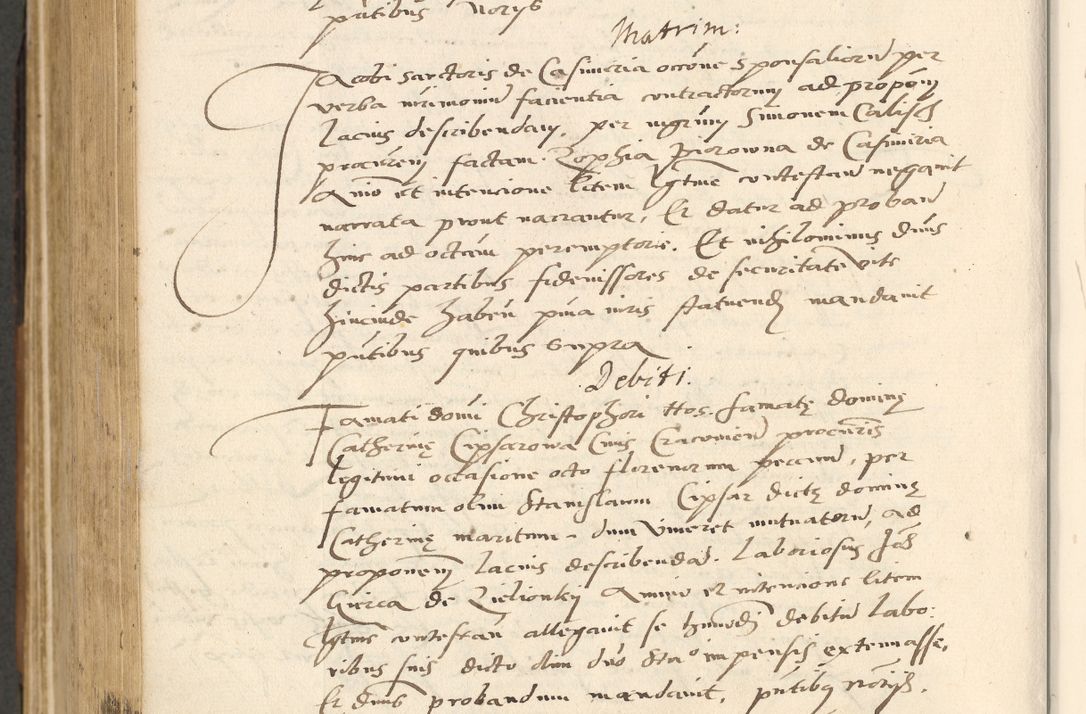 pñtibus Norys
Matrim:
Jacobi Sartoris de Casimiria occõne Sponsalioru per
verba mrimonium facientia contractorum ad proponem
lacius describendam, per mgrum Simonem Calisch
procurem factam. Zophia Pierowna de Casimiria
Animo et intencione litem lgtme contestan negavit
narrata prout narrantur, Et datur ad proban
hinc ad octavu peremptorie. Et nihilominus Dnus
dictis partibus fideiussores de securitate vite
hincinde haberi pena iuris statuendi mandavit
pñtibus quibus Supra
Debiti.
Famati domi Christophori Hos. famate domine
Catherine Cipsarowa Civis Cracovien procuris
legitimi occasione octo florenorum peccun, per
famatum olim Stanislaum Cipsar dicte domine
Catherine maritum dum viveret mutuatoru, ad
proponem lacius describendas. Laboriosus Joes
Gierca de Zielionky Animo et intencione litem
lgtme contestan allegavit se hmodi debitu labo:
ribus suis dicto olim dno Stao impensis extenuasse,
Et Dnus probandum mandavit, pñtibus Notis.